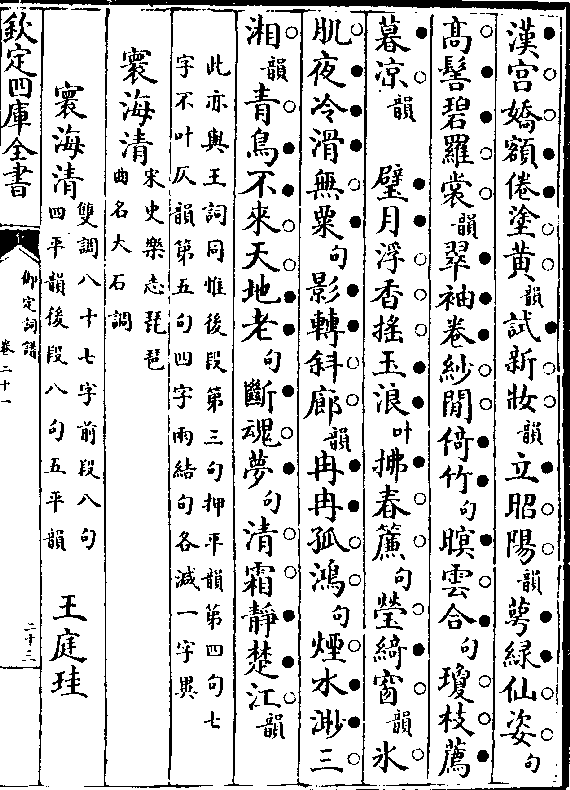 漢宮嬌額倦塗黃韻試新妝韻立昭陽韻萼綠仙姿句
高髻碧羅裳韻翠袖卷紗閒倚竹句暝雲合句瓊枝薦
暮凉韻 璧月浮香搖玉浪叶拂春簾句瑩綺窗韻氷
肌夜冷滑無粟句影轉斜廊韻冉冉孤鴻句煙水渺三
湘韻青鳥不來天地老句斷魂夢句清霜靜楚江韻
此亦與王詞同惟後段第三句押平韻第四句七
字不叶仄韻第五句四字兩結句各減一字異
寰海清宋史樂志琵琶
曲名大石調
寰海清雙調八十七字前段八句
四平韻後段八句五平韻 王庭珪
欽定四庫全書
御定詞譜
卷二十一
二十三